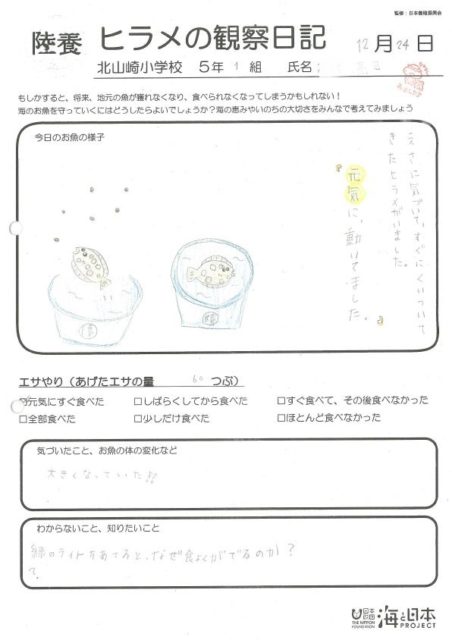 監修：日本養殖振興会
陸養 ヒラメの観察日記 12月24日
北山崎小学校 5年 1 組 氏名
もしかすると、将来、地元の魚が獲れなくなり、食べられなくなってしまうかもしれない！
海のお魚を守っていくにはどうしたらよいでしょうか？海の恵みやいのちの大切さをみんなで考えてみましょう
今日のお魚の様子
えさに気づいて、すぐにくいついて
きたヒラメがいました。
元気に、動いてました。
エサやり（あげたエサの量 60 つぶ）
☑元気にすぐ食べた □しばらくしてから食べた □すぐ食べて、その後食べなかった
□全部食べた □少しだけ食べた □ほとんど食べなかった
気づいたこと、お魚の体の変化など
大きくなっていた!!
わからないこと、知りたいこと
緑のライトをあてると、なぜ食よくがでるのか？
日本財団
THE NIPPON FOUNDATION
海と日本
PROJECT